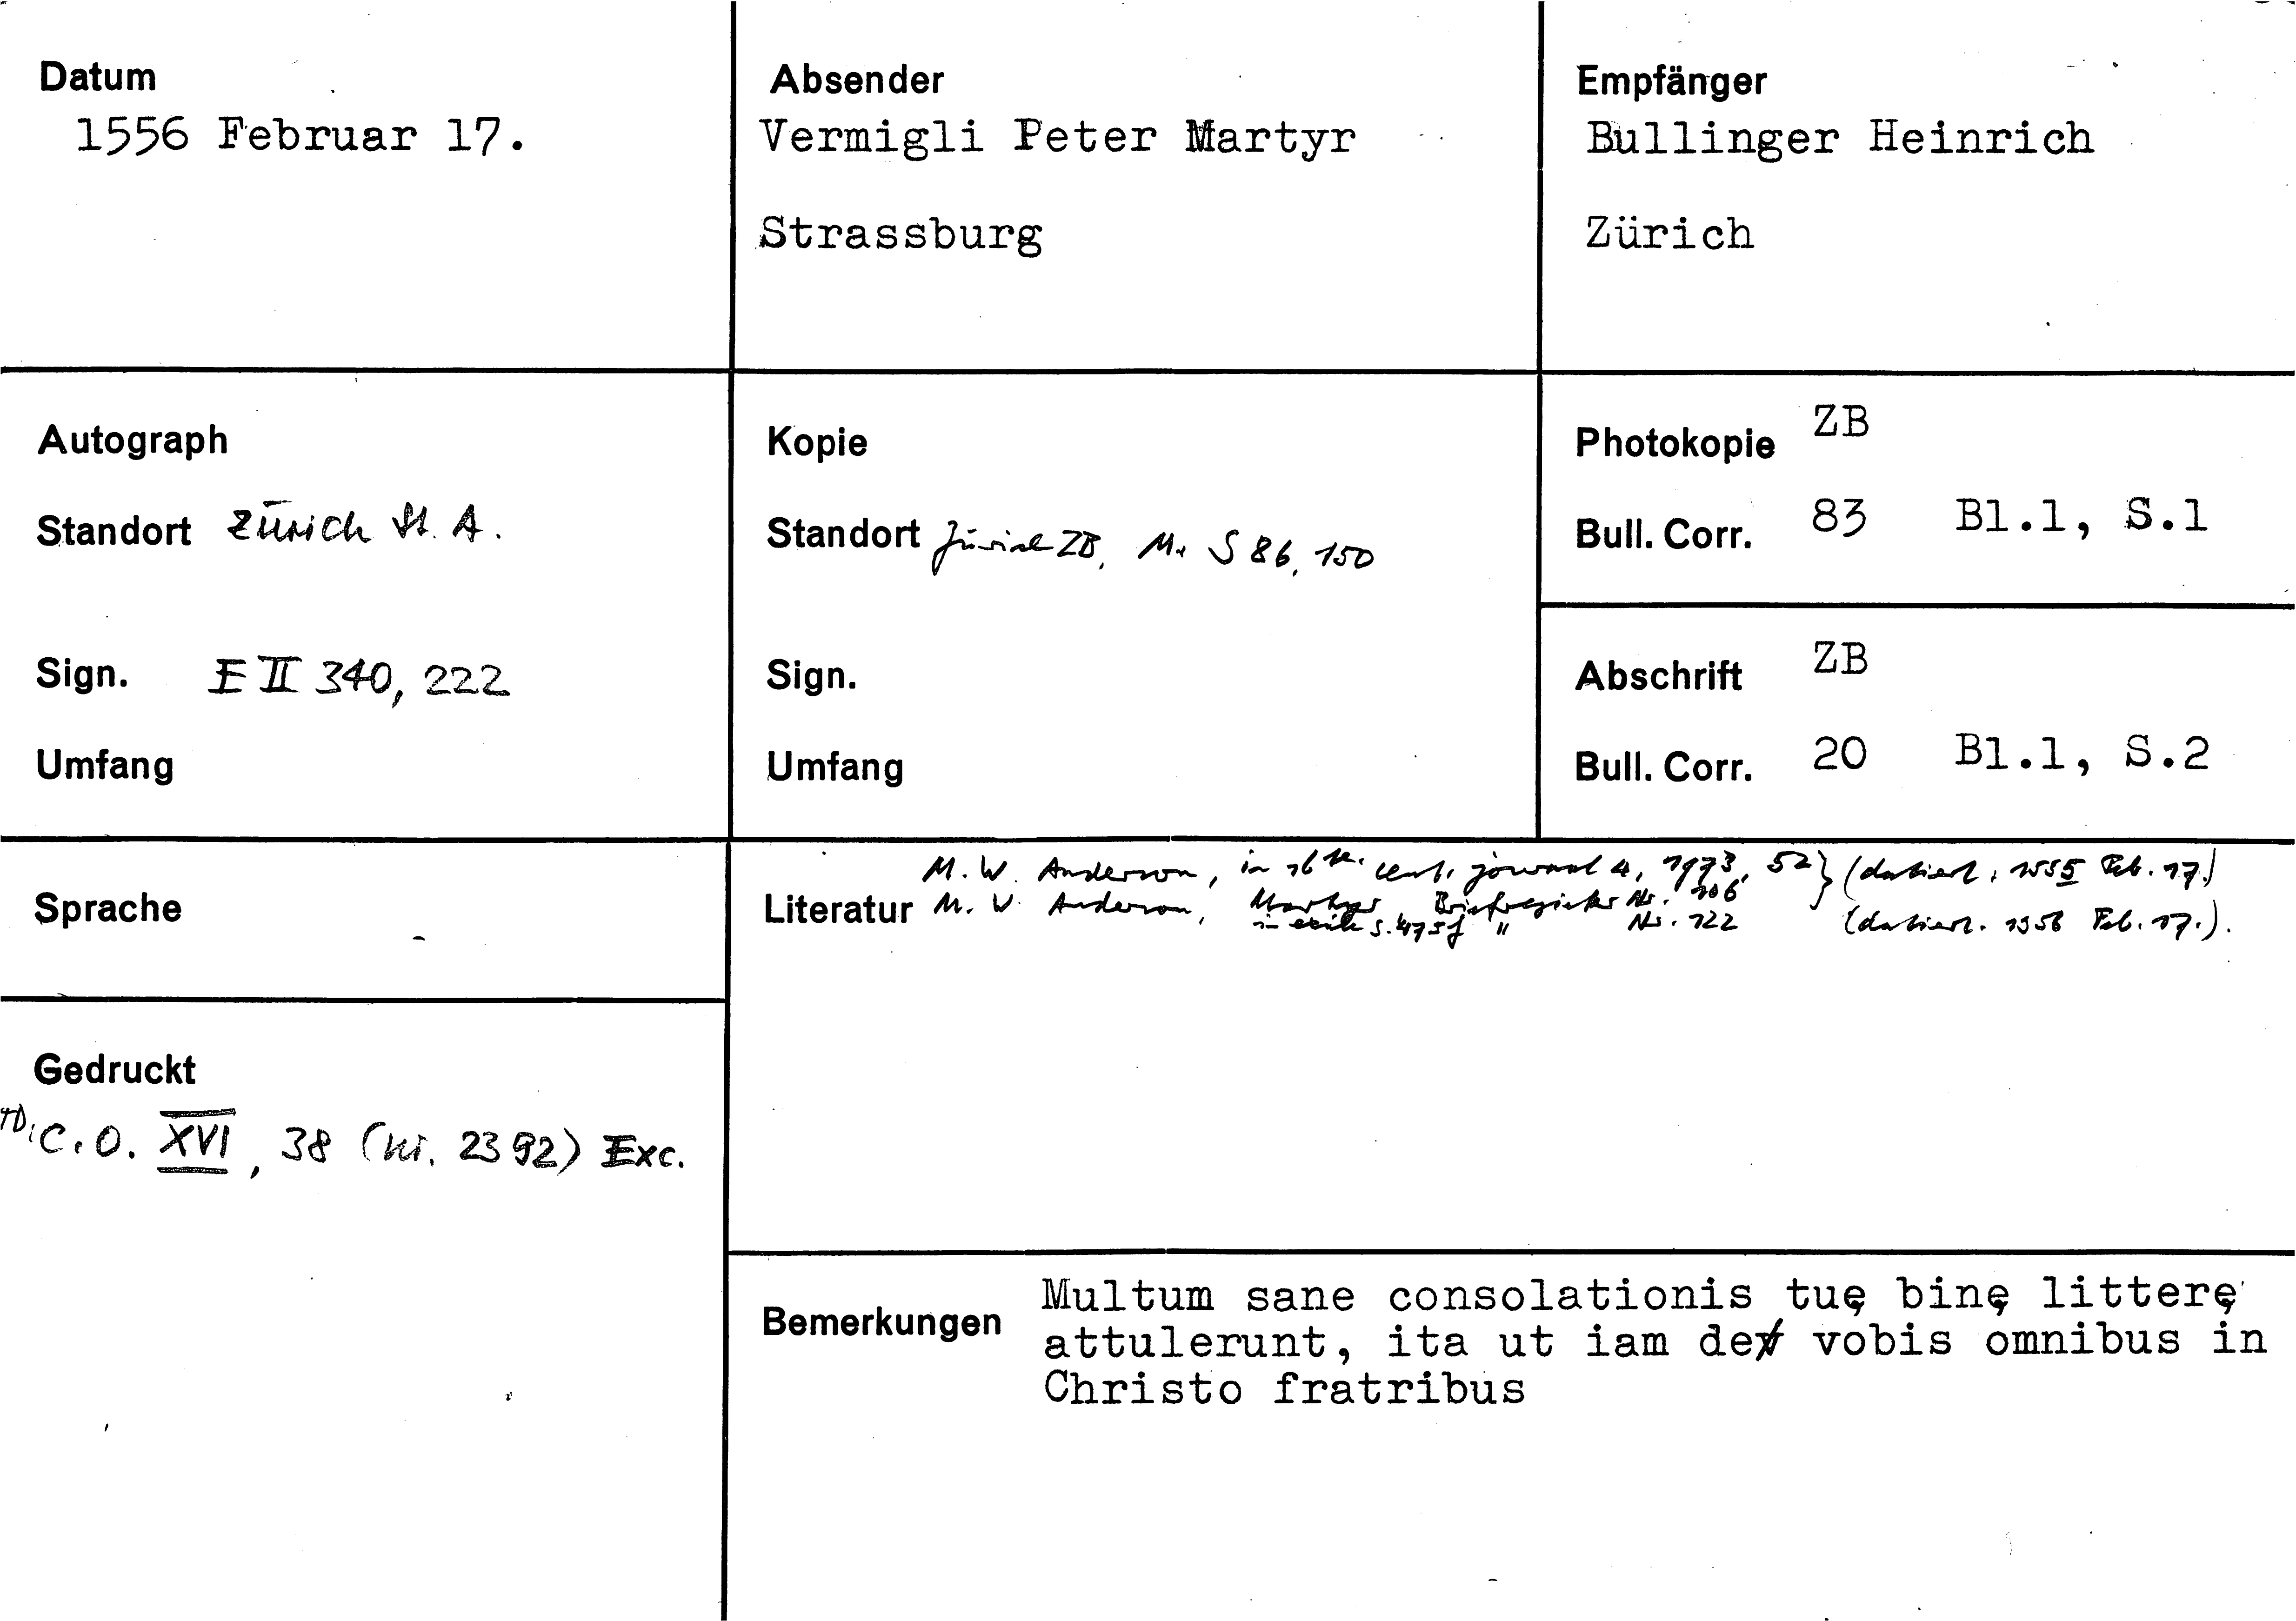 Datum
1556 Februar 17.
Absender
Vermigli Peter Martyr
Strassburg
Empfänger
Bullinger Heinrich
Zürich
Autograph
Standort Zürich St. A.
Sign. E II 340, 222
Umfang
Kopie
Standort Zürich ZB, Ms S 86, 150
Sign.
Umfang
Photokopie ZB
Bull. Corr. 83 Bl.1, S.1
Abschrift ZB
Bull. Corr. 20 Bl.1, S.2
Sprache
Gedruckt
TD: C.O. XVI, 38 (Nr. 2392) Exc.
M. W. Anderson, in 16th cent. journal 4, 1973, 52} (datiert: 1555 Feb. 17.)
Literatur M. W. Anderson, Martyr Briefregister Nr. 106
in exile S. 475f " Nr. 122 (datiert. 1556 Feb. 17.).
Bemerkungen Multum sane consolationis tuę binę litterę
attulerunt, ita ut iam de vobis omnibus in
Christo fratribus